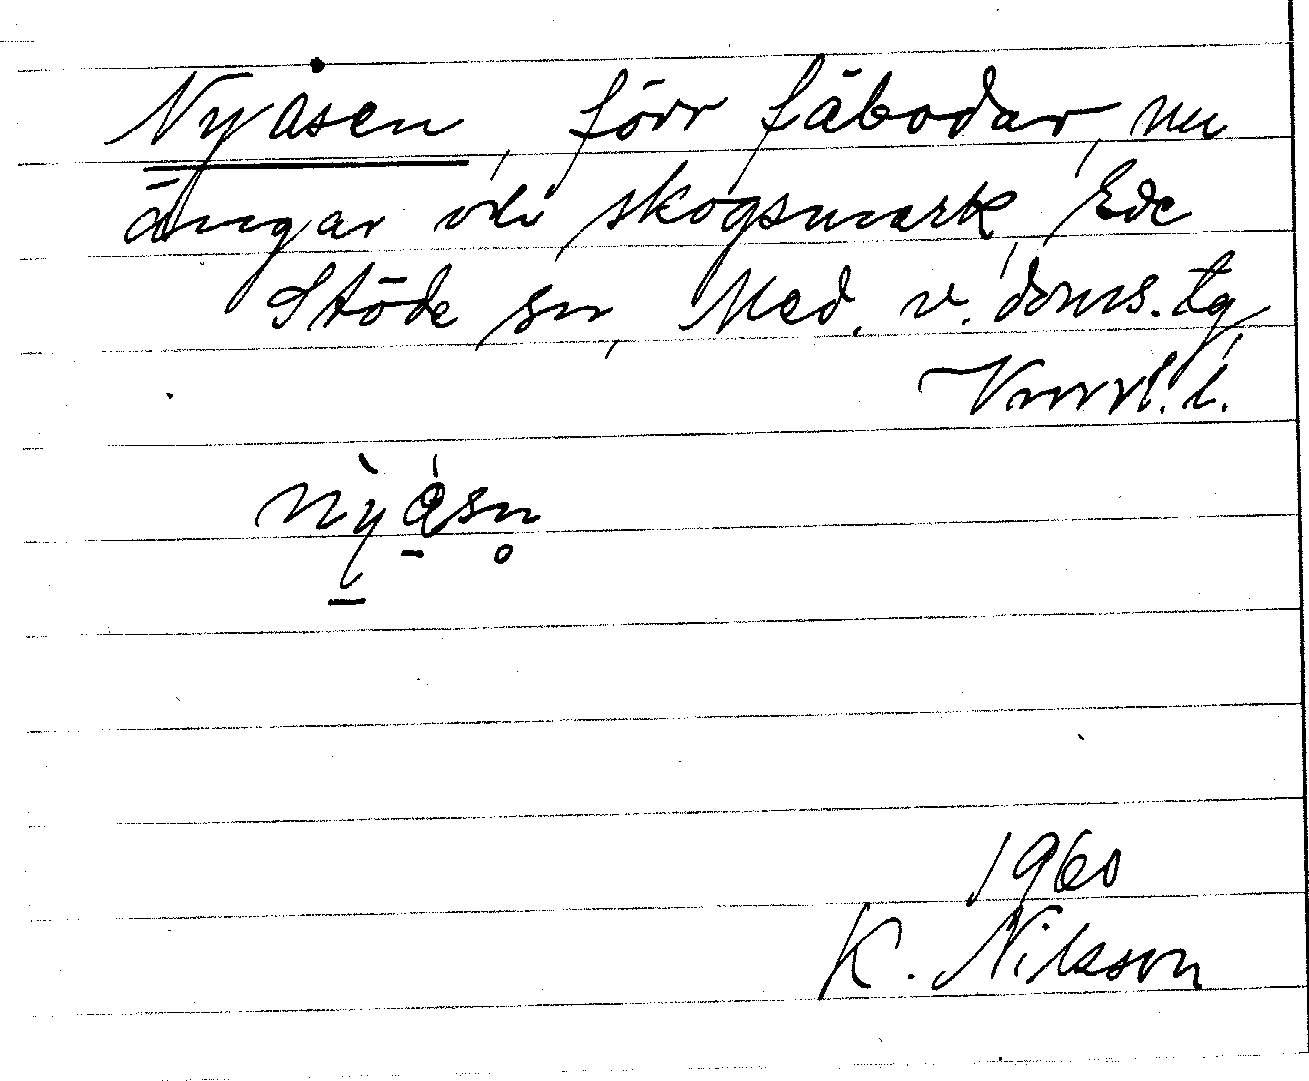 Nyåsen, förr fäbodar, nu
ängar och skogsmark, Ede
Stöde sn, Med. v. doms. tg,
Vnrrl. l.
nỳásn̥
1960
K. Nilsson